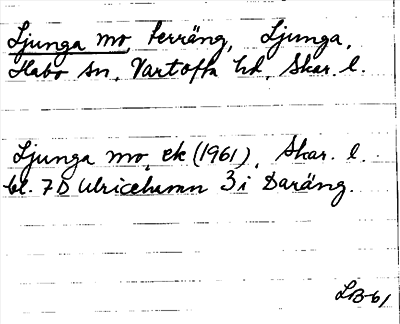 Ljunga mo, terräng, Ljunga,
Habo sn, Vartofta hd, Skar. l.
Ljunga mo, ek (1961), Skar. l.
bl. 7D Ulricehamn 3i Daräng.
LB-61